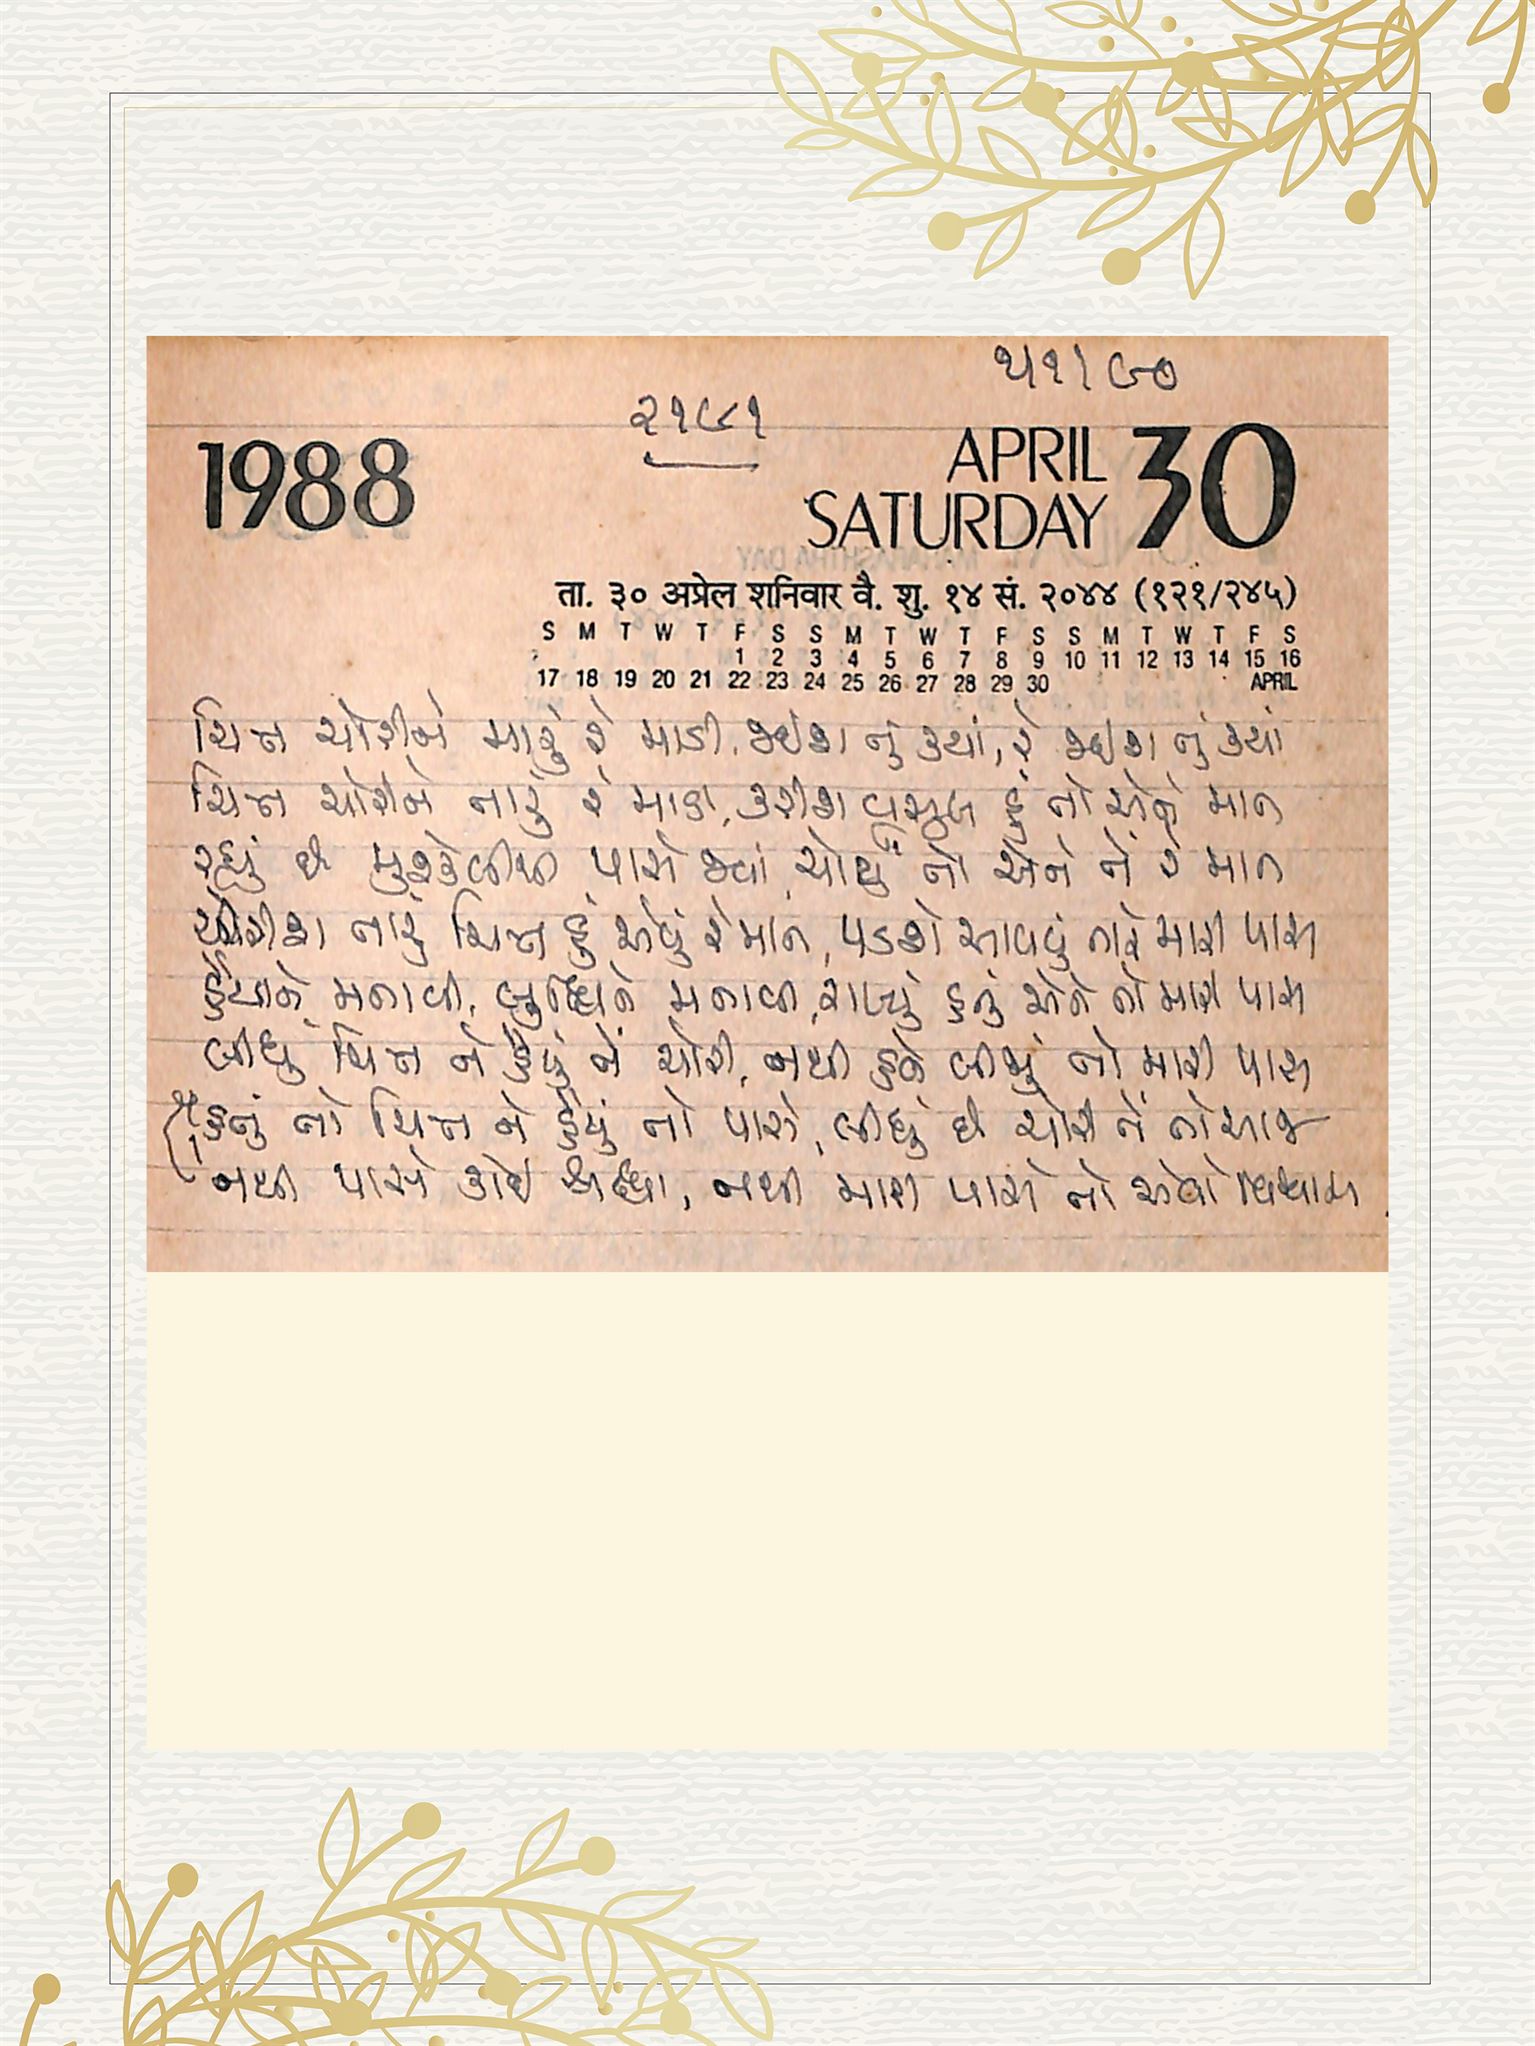 ૫૧/૯૦
૨૧૯૧
1988
APRIL
SATURDAY 30
ता. ३० अप्रेल शनिवार वै. शु. १४ सं. २०४४ (१२१/२४५)
S M T W T F S S M T W T F S S M T W T F S
1 2 3 4 5 6 7 8 9 10 11 12 13 14 15 16
17 18 19 20 21 22 23 24 25 26 27 28 29 30 APRIL
ચિત્ત ચોરીને મારું રે માડી, જઇશ તું ક્યાં, રે જઇશ તું ક્યાં
ચિત્ત ચોરીને તારું રે માડી, કરીશ વસૂલ હું તો એને માત
રહ્યું છે મુશ્કેલીથી પાસે જ્યાં, ચોર્યું તો એને તેં રે માત
ચોરીશ તારું ચિત્ત હું એવું રે માત, પડશે આવવું તારે મારી પાસ
હૈયાને મનાવી, બુદ્ધિને મનાવી, રાખ્યું હતું એને તો મારી પાસ
લીધું ચિત્ત ને હૈયું તેં ચોરી, નથી હવે બીજું તો મારી પાસ
હતું તો ચિત્ત ને હૈયું તો પાસે, લીધું છે ચોરી તેં તો આજ
નથી પાસે કોઈ શ્રદ્ધા, નથી મારી પાસે તો એવો વિશ્વાસ